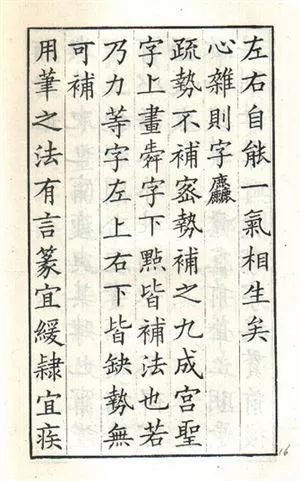 左右自能一氣相生矣
心雜則字麤
疏勢不補密勢補之九成宮聖
字上畫舜字下點皆補法也若
乃力等字左上右下皆缺勢無
可補
用筆之法有言篆宜緩隸宜疾
16